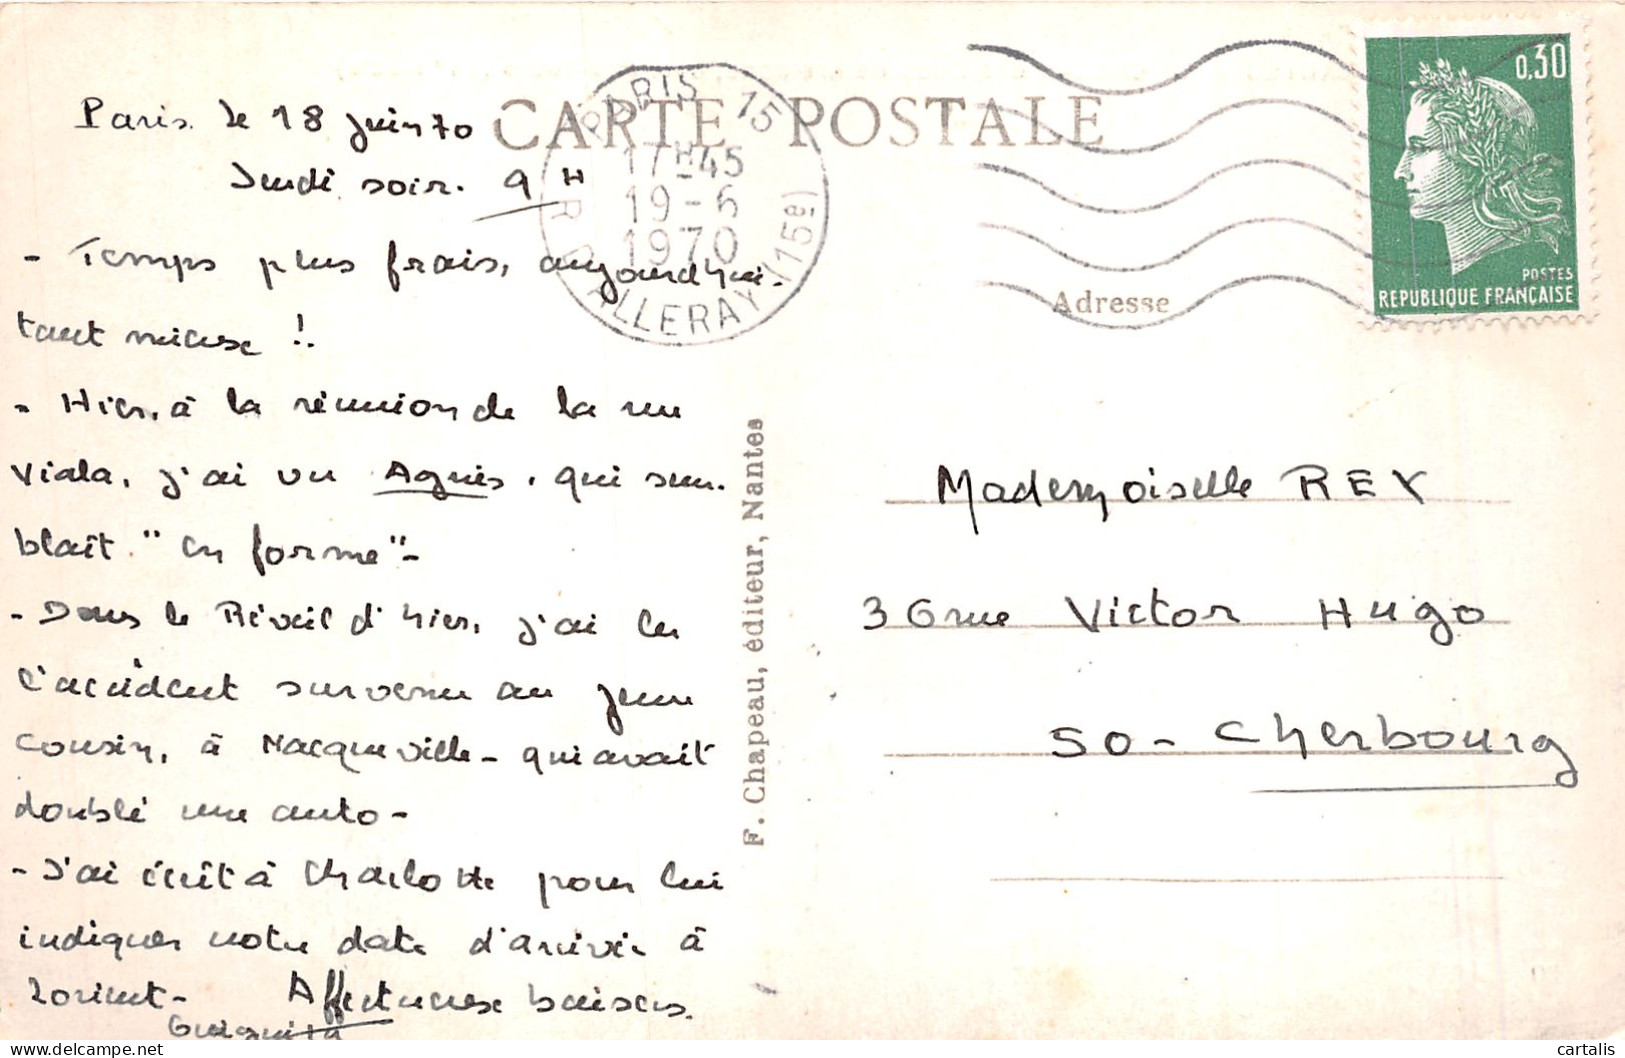 CARTE POSTALE
PARIS 15
17H45
19-6
1970
R. D'ALLERAY (15e)
0,30
POSTES
REPUBLIQUE FRANÇAISE
Adresse
Paris le 18 juin 70
Jeudi soir. 9H
- Temps plus frais, aujourd'hui.
tant mieux !.
- Hier, à la réunion de la rue
Viala, j'ai vu Agnès, qui sem-
blait "en forme" -
- Dans le Réveil d'hier, j'ai lu
l'accident survenu au jeune
cousin, à Nacqueville - qui avait
doublé une auto -
- J'ai écrit à Charlotte pour lui
indiquer notre date d'arrivée à
Lorient - Affectueux baisers.
F. Chapeau, éditeur, Nantes
Mademoiselle REY
36 rue Victor Hugo
50 - Cherbourg
cartalis